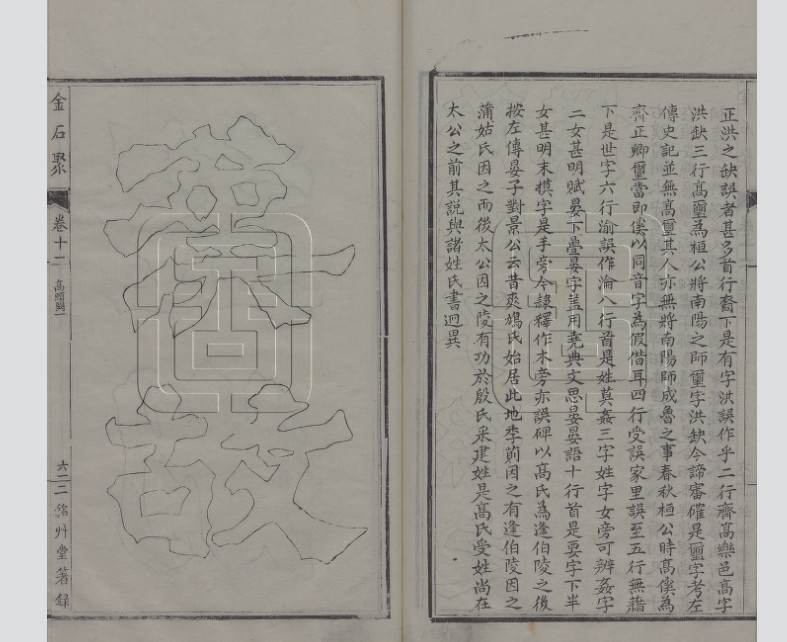 正洪之缺誤者甚多首行裔下是有字洪誤作乎二行齊高樂邑高字
洪缺三行高璽為桓公將南陽之師璽字洪缺今諦審確是璽字考左
傳史記並無高璽其人亦無將南陽師成魯之事春秋桓公時高傒為
齊正卿璽當即傒以同音字為假借耳四行受誤家里誤至五行無藉
下是世字六行渝誤作淪八行首是姓莫姦三字姓字女旁可辨姦字
二女甚明賦晏下疊晏字蓋用堯典文思晏晏語十行首是耍字下半
女甚明末摸字是手旁今隸釋作木旁亦誤碑以高氏為逢伯陵之後
按左傳晏子對景公云昔爽鳩氏始居此地季萴因之有逢伯陵因之
蒲姑氏因之而後太公因之陵有功於殷氏采建姓是高氏受姓尚在
太公之前其說與諸姓氏書迥異
故
金石聚
卷十一
高頤闕一
六二二
堂著錄